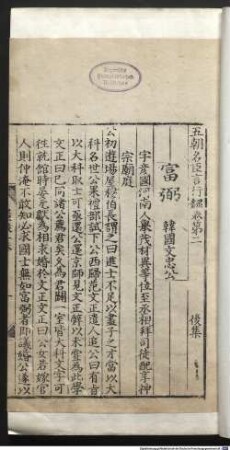 五朝名臣言行錄卷第二 後集
富弼 韓國文忠公
字彥國河南人舉茂材異等位至丞相拜司徒配享神
宗廟庭
公初遊場屋穆伯長謂之曰進士不足以盡子之才當以大
科名世公果禮部試下公西歸范文正遣人追公曰有旨
以大科取士可亟還公還京師見文正辭以未嘗為此學
文正曰已同諸公薦君矣久為君闢一室皆大科文字可
往就館時晏元獻為相求婚於文正文正曰公女若嫁官
人則仲淹不敢知必求國士無如富弼者即議婚公遂以